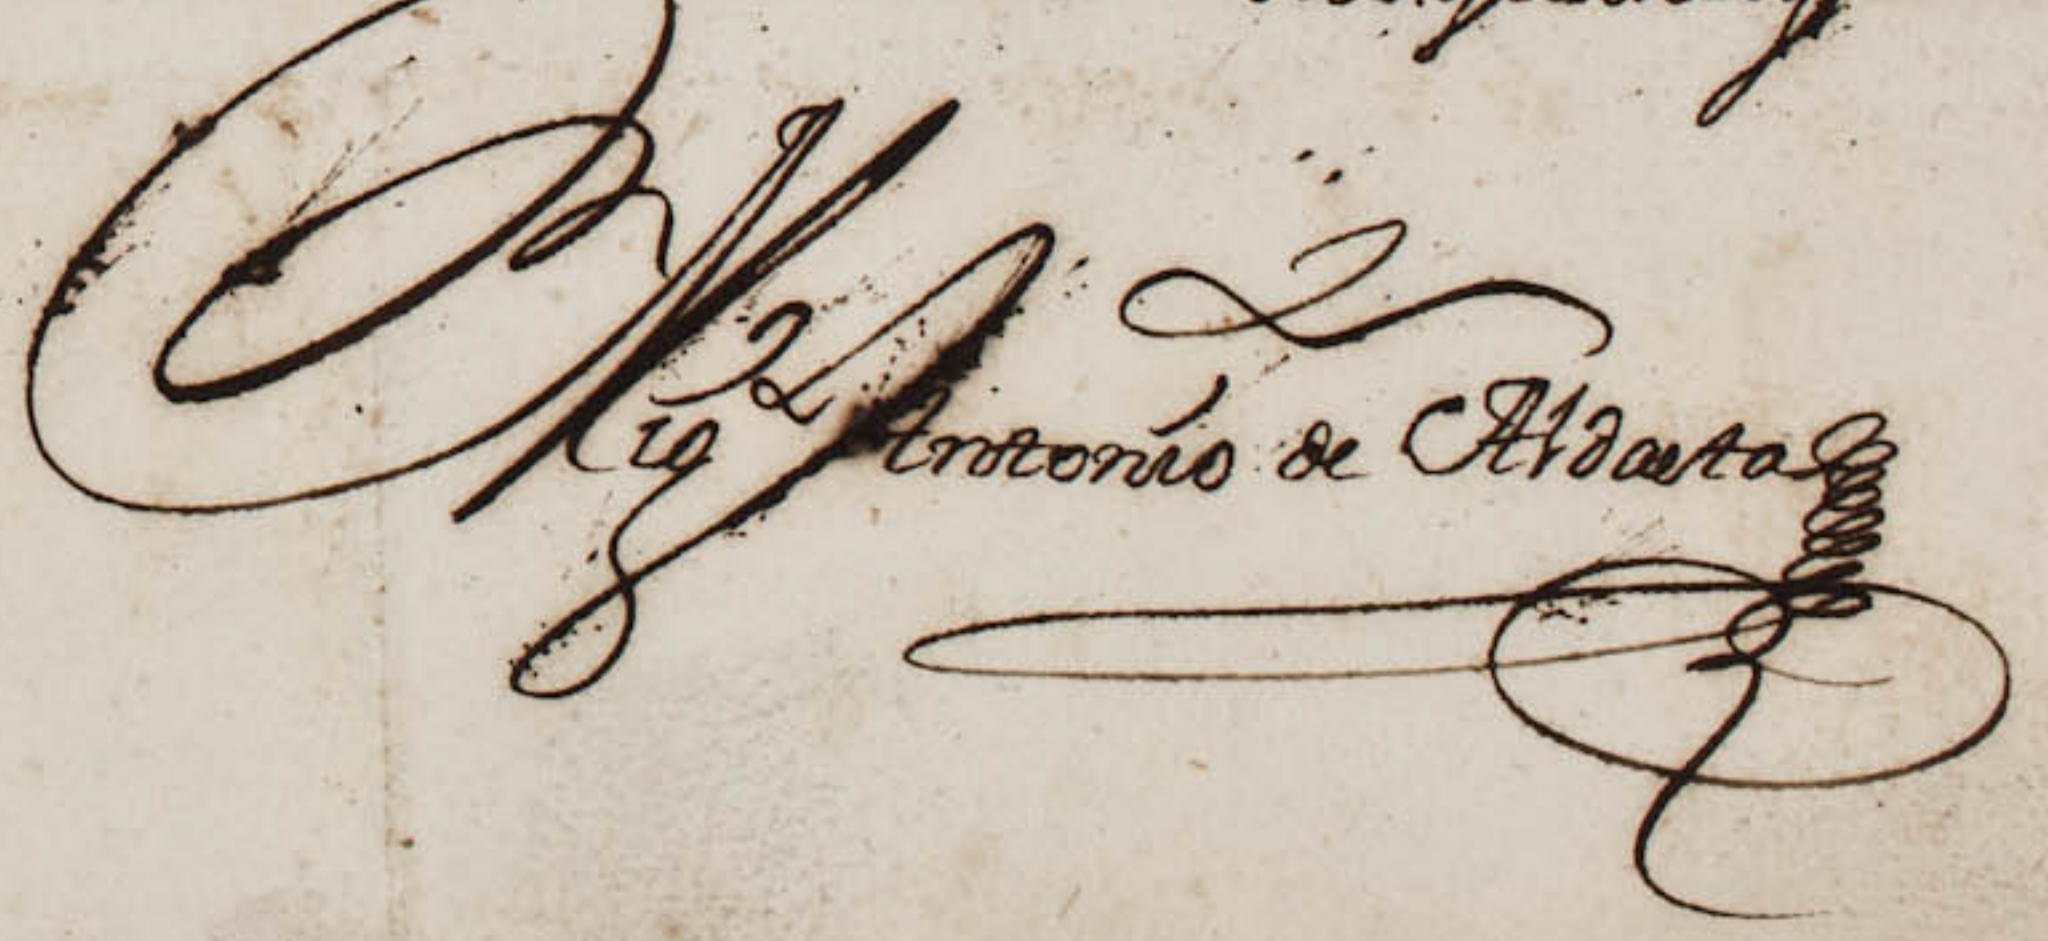 Mig^l Antonio de Aldasta